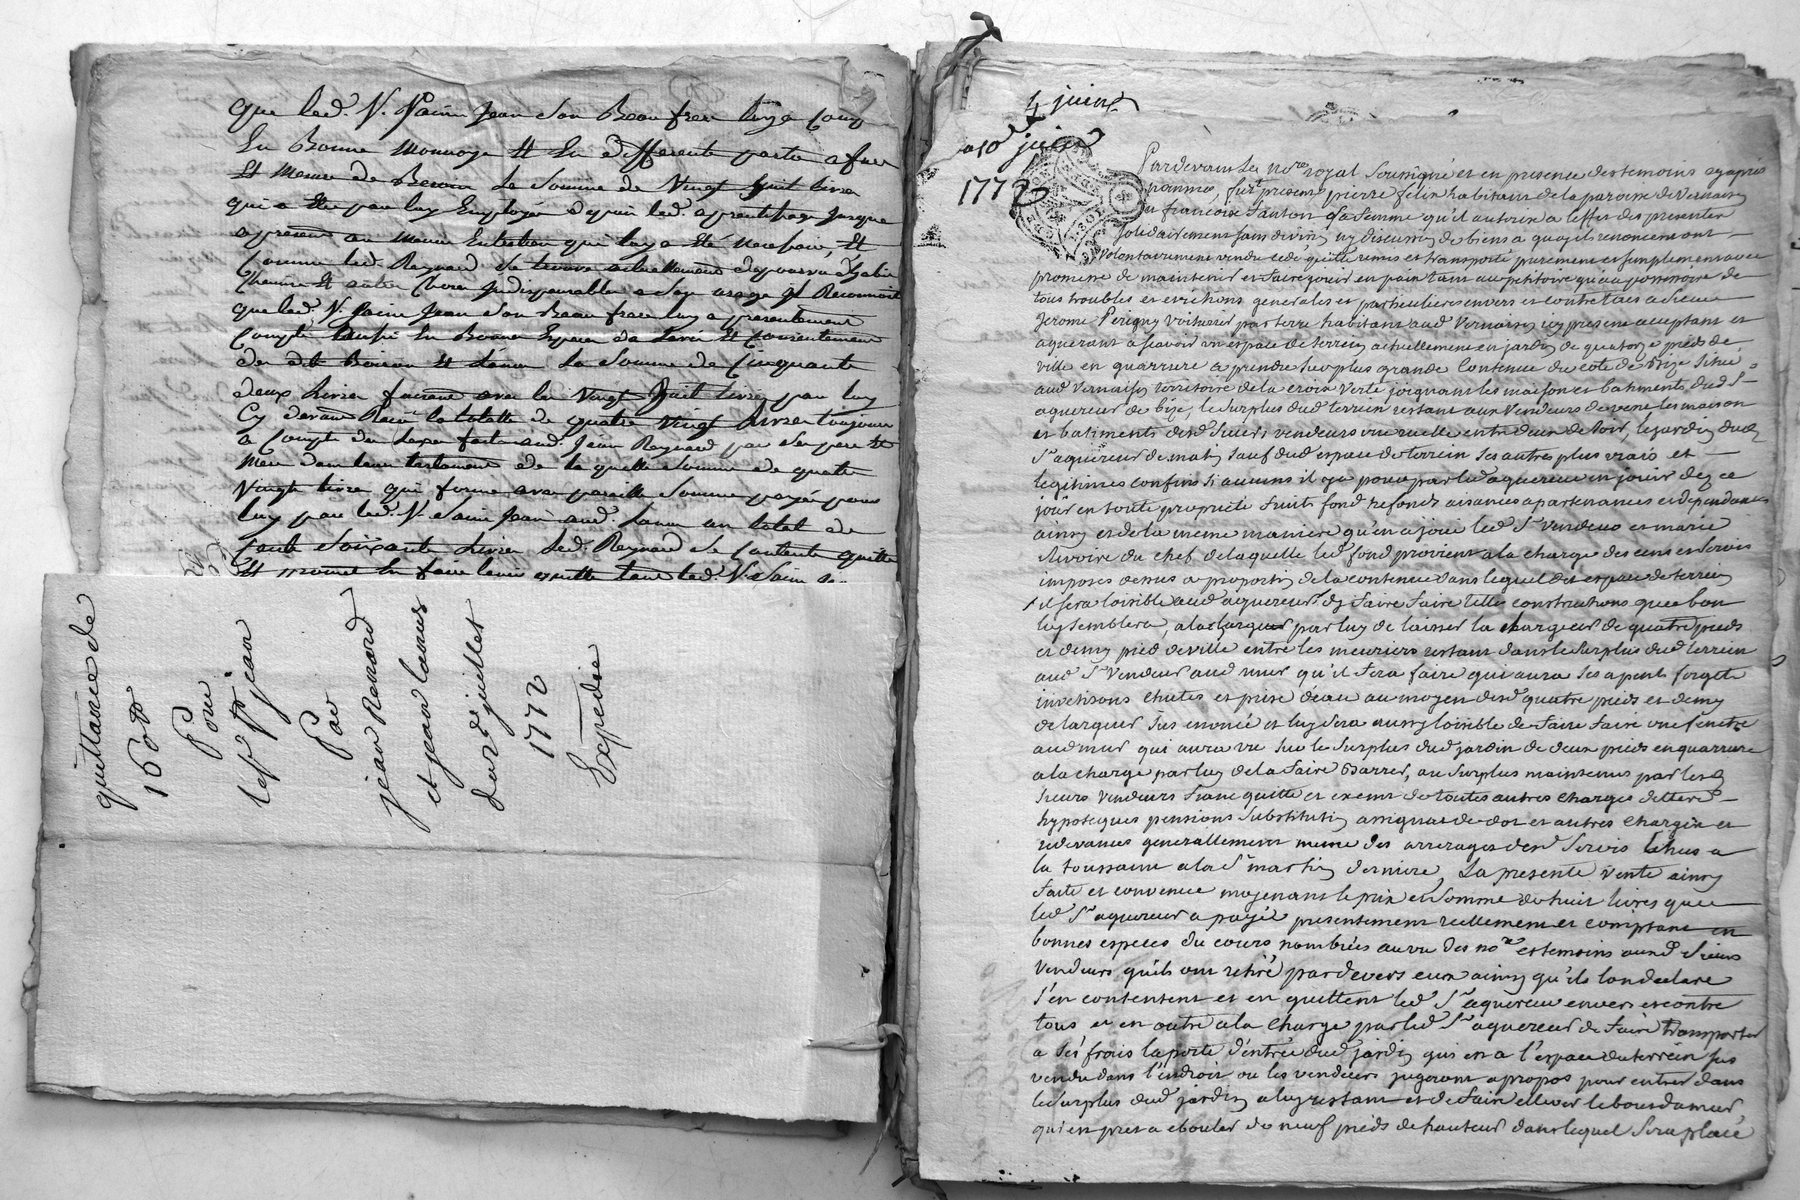 que led. Sr. Saint Jean son Beau frere luy a compté
En Bonne monnoye Et En differents
Et Meme de Besoin La Somme de Vingt huit livres
qui a été par luy Employée depuis led. apprentissage jusque
a present au menu Entretien qui luy a été necessaire, Et
Comme led. Reynard se trouve actuellement depourvu d'habit
Chemise Et autres Choses Indispensables a son usage Il Reconnoit
que led. Sr. Saint Jean son Beau frere luy a presentement
Compté aussi En Bonnes Especes
la Somme de Cinquante
deux livres faisant avec les Vingt huit livres par luy
Cy devant Reçu la totalle de quatre Vingt livres toujours
a Compte des aud. Jean Reynard par ses pere Et
Mere dans leur testament de la quelle Somme de quatre
Vingt livres qui forme avec pareille Somme payée pour
luy par led. Sr. Saint Jean aud. Lanus un total de
Cent Soixante livres led. Reynard se Contente quitte
Et promet En faire tenir quitte led. Sr. Saint
quittance de
160 tt
Pour
le Sr St jean
Par
jean Renard
et jean Lanus
du 2e juillet
1772
Expedie
4 juin
10 juin
1772
Pardevant Les nore. royal Soussigné et en presence des temoins cy après
nommés, furt. presens pierre felix habitant de la paroisse de Vernaison
et francoise Santon sa femme qu'il autorise a l'effet des presentes
solidairement sans division ny discussion de biens a quoy ils renoncent ont
volontairement vendu cedé quitté remis et transporté purement et simplement avec
promesse de maintenir et faire jouir en paix tant au petitoire qu'au possessoire de
tous troubles et evictions generales et particulieres envers et contre tous a sieur
Jerome Perigny voiturier par terre habitant aud Vernaison icy present acceptant et
aquerant a scavoir un espace de terrein actuellement en jardin de quatorze pieds de
ville en quarrure a prendre sur plus grande Contenue du coté de bize situé
aud Vernaison territoire de la croix Verte joignant les maison et batiments dud Sr
aquereur de bize, le surplus dud terrein restant aux Vendeurs de vent les maison
et batiments desd Sieurs vendeurs une ruelle entre deux de soir, le jardin dud
Sr aquereur de matin sauf dud espace de terrein ses autres plus vrais et
legitimes confins si aucuns il y a pour par led aquereur en jouir dez ce
jour en toute proprieté fruits fond trefonds aisances apartenances et dependances
ainsy et de la meme maniere qu'en a joui led Sr Vendeur et marie
Rivoire du chef de laquelle led fond provient a la charge des cens et servis
imposés dessus a proportion de la contenue dans lequel dit espace de terrein
il sera loisible aud aquereur d'y faire faire telles constructions que bon
luy semblera, a la charge par luy de laisser la largeur de quatre pieds
et demy pied de ville entre les meuriers restant dans le surplus dud terrein
aud Sr Vendeur aud mur qu'il fera faire qui aura ses apents forgets
invetisons chutes et prise d'eau au moyen desd quatre pieds et demy
de largeur sus enoncé et luy sera aussy loisible de faire faire une fenetre
aud mur qui aura vue sur le surplus dud jardin de deux pieds en quarrure
a la charge par luy de la faire barrer, au surplus maintenus par lesd
sieurs vendeurs franc quitte et exemt de toutes autres charges dettes
hypoteques pensions substitution assignat de dot et autres charges et
redevances generallement meme des arrerages desd servis echus a
la toussaint a la St martin derniere, La presente vente ainsy
faite et convenue moyenant le prix et somme de huit livres que
led Sr aquereur a payé presentement reellement et comptant en
bonnes especes du cours nombrées au vu des nore et temoins auxd Sieurs
Vendeurs qu'ils ont retiré pardevers eux ainsy qu'ils l'on declaré
s'en contentent et en quittent led Sr aquereur envers et contre
tous et en outre a la charge par led Sr aquereur de faire transporter
a ses frais la porte d'entrée dud jardin qui est a l'espace du terrein sus
vendu dans l'endroit ou les vendeurs jugeront apropos pour entrer dans
le surplus dud jardin a luy restant et de faire ellever le bout du mur
qui est pres a ebouler de neuf pieds de hauteur dans lequel sera placé